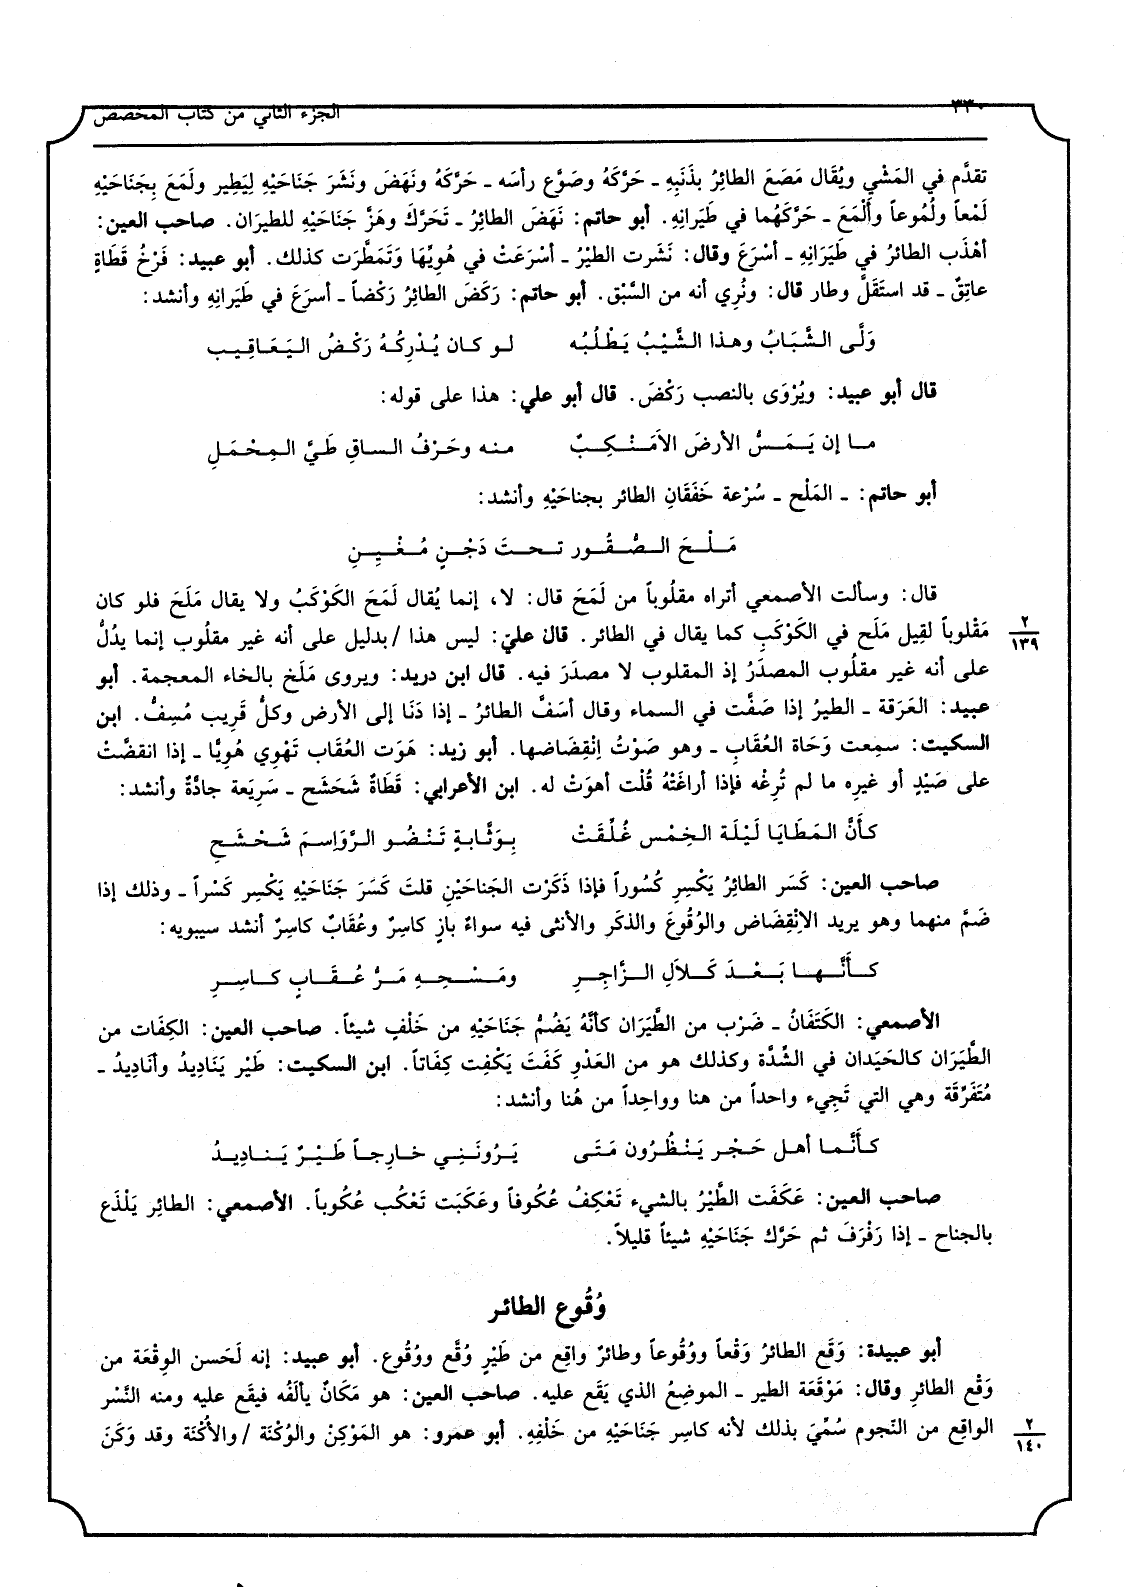 ٣٣٠
الجزء الثاني من كتاب المخصص
تقدَّم في المَشْي ويُقَال مَصَعَ الطائِرُ بِذَنَبِهِ ـ حَرَّكَهُ وصَوَّع رأسَه ـ حَرَّكَهُ ونَهَضَ ونَشَرَ جَنَاحَيْهِ لِيَطِير ولَمَعَ بِجَنَاحَيْهِ
لَمْعاً ولُمُوعاً وأَلْمَعَ ـ حَرَّكَهُما في طَيَرانِهِ. أبو حاتم: نَهَضَ الطائِرُ ـ تَحَرَّكَ وهَزَّ جَنَاحَيْهِ للطيرَان. صاحب العين:
أهْذَب الطائرُ في طَيَرَانِهِ ـ أسْرَعَ وقال: نَشَرت الطيْرُ ـ أسْرَعَتْ في هُوِيِّهَا وَتَمَطَّرَت كذلك. أبو عبيد: فَرْخُ قَطَاةٍ
عاتِقٌ ـ قد استَقَلَّ وطار قال: ونُرِي أنه من السَّبْق. أبو حاتم: رَكَضَ الطائِرُ رَكْضاً ـ أسرَعَ في طَيَرانِهِ وأنشد:
وَلَّى الشَّبَابُ وهذا الشَّيْبُ يَطْلُبُه لو كان يُدْرِكُهُ رَكْضُ اليَعَاقِيب
قال أبو عبيد: ويُرْوَى بالنصب رَكْضَ. قال أبو علي: هذا على قوله:
ما إن يَمَسُّ الأرضَ الاَمَنْكِبٌ منه وحَرْفُ الساقِ طَيَّ المِحْمَلِ
أبو حاتم: ـ المَلْح ـ سُرْعة خَفَقَانِ الطائر بجناحَيْهِ وأنشد:
مَلْحَ الصُّقُور تحتَ دَجْنٍ مُغْيِنِ
قال: وسألت الأصمعي أتراه مقلُوباً من لَمَحَ قال: لا، إنما يُقال لَمَحَ الكَوْكَبُ ولا يقال مَلَحَ فلو كان
مَقْلوباً لقِيل مَلَح في الكَوْكَبِ كما يقال في الطائر. قال علي: ليس هذا /بدليل على أنه غير مقلُوب إنما يدُلُّ
٢
١٣٩
على أنه غير مقلُوب المصدَرُ إذ المقلوب لا مصدَرَ فيه. قال ابن دريد: ويروى مَلَخ بالخاء المعجمة. أبو
عبيد: العَرَقة ـ الطيرُ إذا صَفَّت في السماء وقال أسَفَّ الطائرُ ـ إذا دَنَا إلى الأرض وكلُّ قَرِيب مُسِفٌّ. ابن
السكيت: سمِعت وَحَاة العُقَابِ ـ وهو صَوْتُ اِنْقِضَاضها. أبو زيد: هَوَت العُقَاب تَهْوِي هُوِيًّا ـ إذا انقضَّتْ
على صَيْدٍ أو غيرِه ما لم تُرِغْه فإذا أراغَتْهُ قُلْت أهوَتْ له. ابن الأعرابي: قَطَاةٌ شَحَشح ـ سَرِيَعة جادَّةٌ وأنشد:
كأَنَّ المَطَايَا لَيْلَة الخِمْس عُلِّقَتْ بِوَثَّابةٍ تَنْضُو الرَّوَاسِمَ شَحْشَحِ
صاحب العين: كَسَر الطائِرُ يَكْسِر كُسُوراً فإذا ذَكَرْت الجَناحَيْنِ قلتَ كَسَرَ جَنَاحَيْهِ يَكْسِر كَسْراً ـ وذلك إذا
ضَمَّ منهما وهو يريد الاِنْقِضَاض والوُقُوعَ والذكَر والأنثى فيه سواءٌ بازٍ كاسِرٌ وعُقَابٌ كاسِرٌ أنشد سيبويه:
كأَنَّها بَعْدَ كَلاَلِ الزَّاجِرِ ومَسْحِهِ مَرُّ عُقَابٍ كاسِرِ
الأصمعي: الكَتَفَانُ ـ ضَرْب من الطَّيَرَان كأنَّهُ يَضُمُّ جَنَاحَيْهِ من خَلْفٍ شيئاً. صاحب العين: الكِفَات من
الطَّيَرَان كالحَيَدان في الشِّدَّة وكذلك هو من العَدْوِ كَفَتَ يَكْفِت كِفَاتاً. ابن السكيت: طَيْر يَنَادِيدُ وأنَادِيدُ ـ
مُتَفَرِّقَة وهي التي تَجِيء واحداً من هنا وواحِداً من هُنا وأنشد:
كأَنَّما أهل حَجْر يَنْظُرُون مَتَى يَرُونَنِي خارِجاً طَيْرٌ يَنادِيدُ
صاحب العين: عَكَفَت الطَّيْرُ بالشيء تَعْكِفُ عُكُوفاً وعَكَبَت تَعْكُب عُكُوباً. الأصمعي: الطائِر يَلْذَع
بالجناح ـ إذا رَفْرَفَ ثم حَرَّك جَنَاحَيْهِ شيئاً قليلاً.
وُقُوع الطائر
أبو عبيدة: وَقَع الطائرُ وَقْعاً ووُقُوعاً وطائرٌ واقِع من طَيْرٍ وُقَّع ووُقُوع. أبو عبيد: إنه لَحَسن الوِقْعَة من
وَقْع الطائرِ وقال: مَوْقَعَة الطير ـ الموضِعُ الذي يَقَع عليه. صاحب العين: هو مَكَانٌ يألَفُه فيقَع عليه ومنه النَّسْر
الواقِع من النّجوم سُمِّيَ بذلك لأنه كاسِر جَنَاحَيْهِ من خَلْفِهِ. أبو عمرو: هو المَوْكِنْ والوُكْنَة /والأُكْنَة وقد وَكَنَ
٢
١٤٠